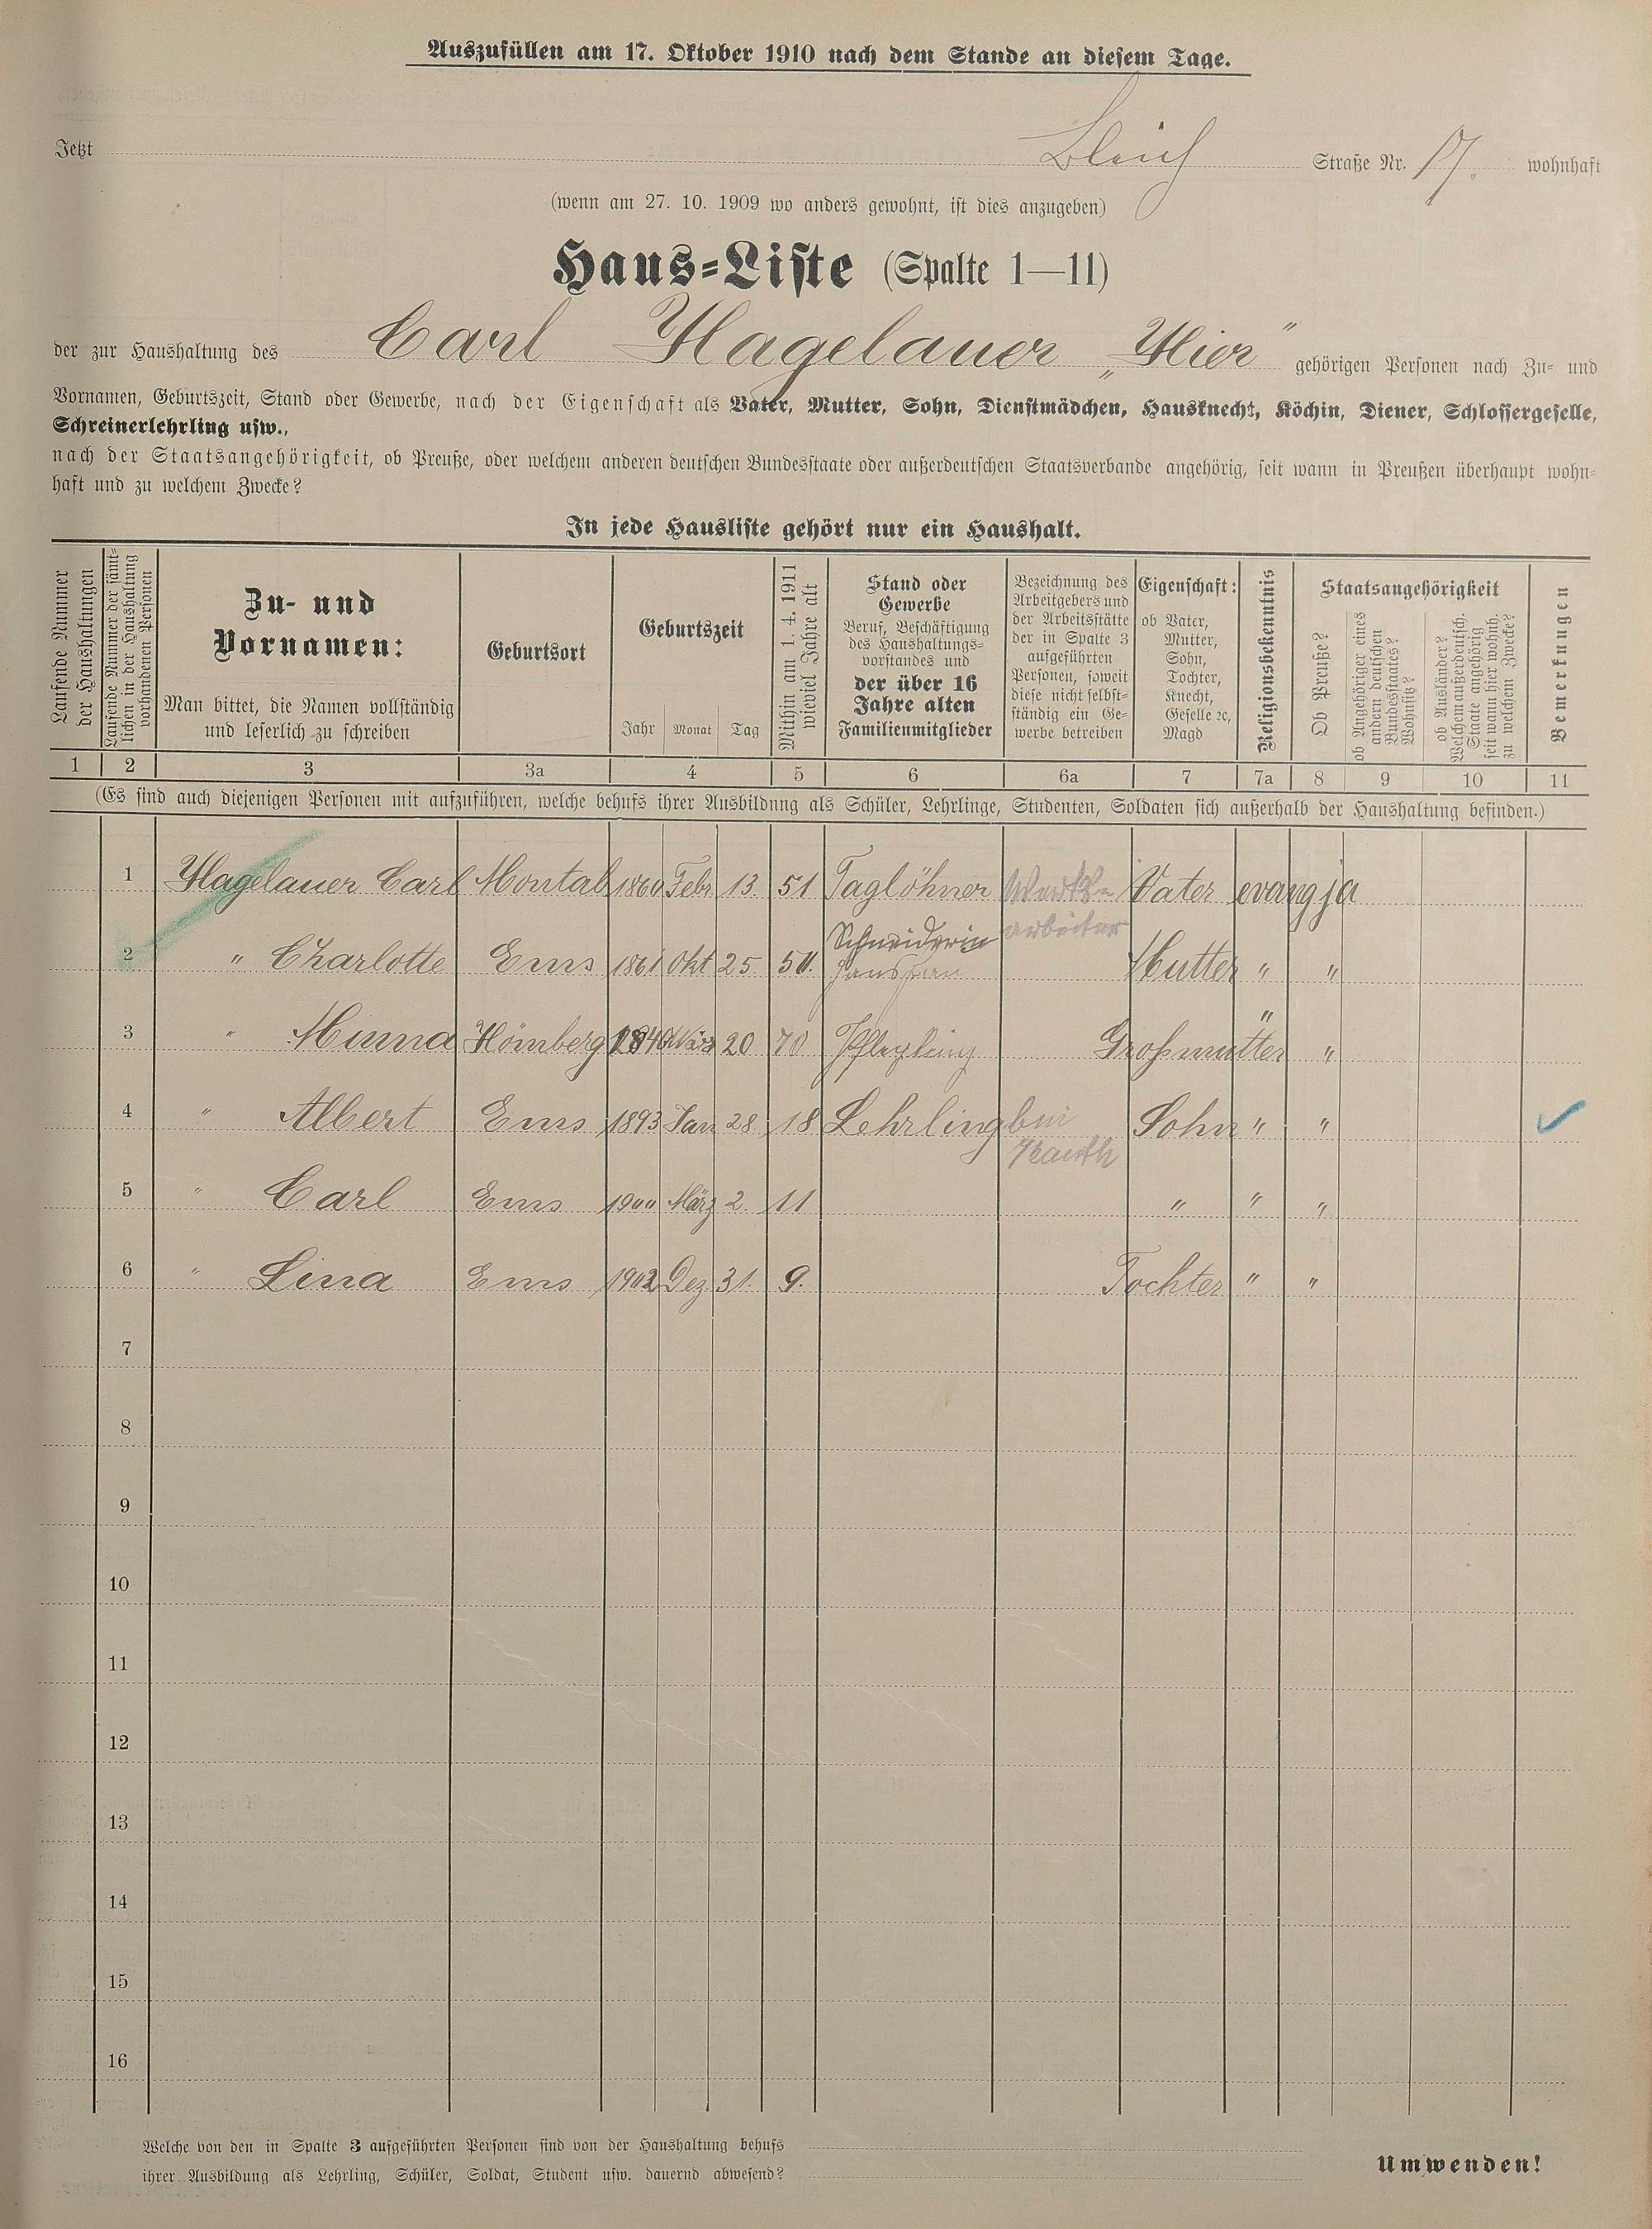 Auszufüllen am 17. Oktober 1910 nach dem Stande an diesem Tage.
Jetzt Bleich Straße Nr. 17. wohnhaft
(wenn am 27. 10. 1909 wo anders gewohnt, ist dies anzugeben)
Haus-Liste (Spalte 1—11)
der zur Haushaltung des Carl Hagelauer „Hier" gehörigen Personen nach Zu- und
Vornamen, Geburtszeit, Stand oder Gewerbe, nach der Eigenschaft als Vater, Mutter, Sohn, Dienstmädchen, Hausknecht, Köchin, Diener, Schlossergeselle,
Schreinerlehrling usw.,
nach der Staatsangehörigkeit, ob Preuße, oder welchem anderen deutschen Bundesstaate oder außerdeutschen Staatsverbande angehörig, seit wann in Preußen überhaupt wohn-
haft und zu welchem Zwecke?
In jede Hausliste gehört nur ein Haushalt.
Laufende Nummer
der Haushaltungen
Laufende Nummer der sämt-
lichen in der Haushaltung
vorhandenen Personen
Zu- und
Vornamen:
Man bittet, die Namen vollständig
und leserlich zu schreiben
Geburtsort
Geburtszeit
Jahr Monat Tag
Mithin am 1. 4. 1911
wieviel Jahre alt
Stand oder
Gewerbe
Beruf, Beschäftigung
des Haushaltungs-
vorstandes und
der über 16
Jahre alten
Familienmitglieder
Bezeichnung des
Arbeitgebers und
der Arbeitsstätte
der in Spalte 3
aufgeführten
Personen, soweit
diese nicht selbst-
ständig ein Ge-
werbe betreiben
Eigenschaft:
ob Vater,
Mutter,
Sohn,
Tochter,
Knecht,
Geselle ꝛc,
Magd
Religionsbekenntnis
Staatsangehörigkeit
Ob Preuße?
ob Angehöriger eines
andern deutschen
Bundesstaates?
Wohnsitz?
ob Ausländer?
Welchem außerdeutsch.
Staate angehörig
seit wann hier wohnh.
zu welchem Zwecke?
Bemerkungen
1 2 3 3a 4 5 6 6a 7 7a 8 9 10 11
(Es sind auch diejenigen Personen mit aufzuführen, welche behufs ihrer Ausbildung als Schüler, Lehrlinge, Studenten, Soldaten sich außerhalb der Haushaltung befinden.)
1 Hagelauer Carl Montab 1860 Febr. 13. 51 Taglöhner Vater evang ja
arbeiter
Schneiderin
2 " Charlotte Ems 1861 Okt 25. 50. Hausfrau Mutter " "
3 " Minna Hömberg 1840 März 20 70 Pflegling Großmutter " "
4 " Albert Ems 1893 Jan 28. 18 Lehrling bei Sohn " "
5 " Carl Ems 1900 März 2. 11 " " "
6 " Lina Ems 1902 Dez 31. 9. Tochter " "
7
8
9
10
11
12
13
14
15
16
Welche von den in Spalte 3 aufgeführten Personen sind von der Haushaltung behufs
ihrer Ausbildung als Lehrling, Schüler, Soldat, Student usw. dauernd abwesend?
Umwenden!